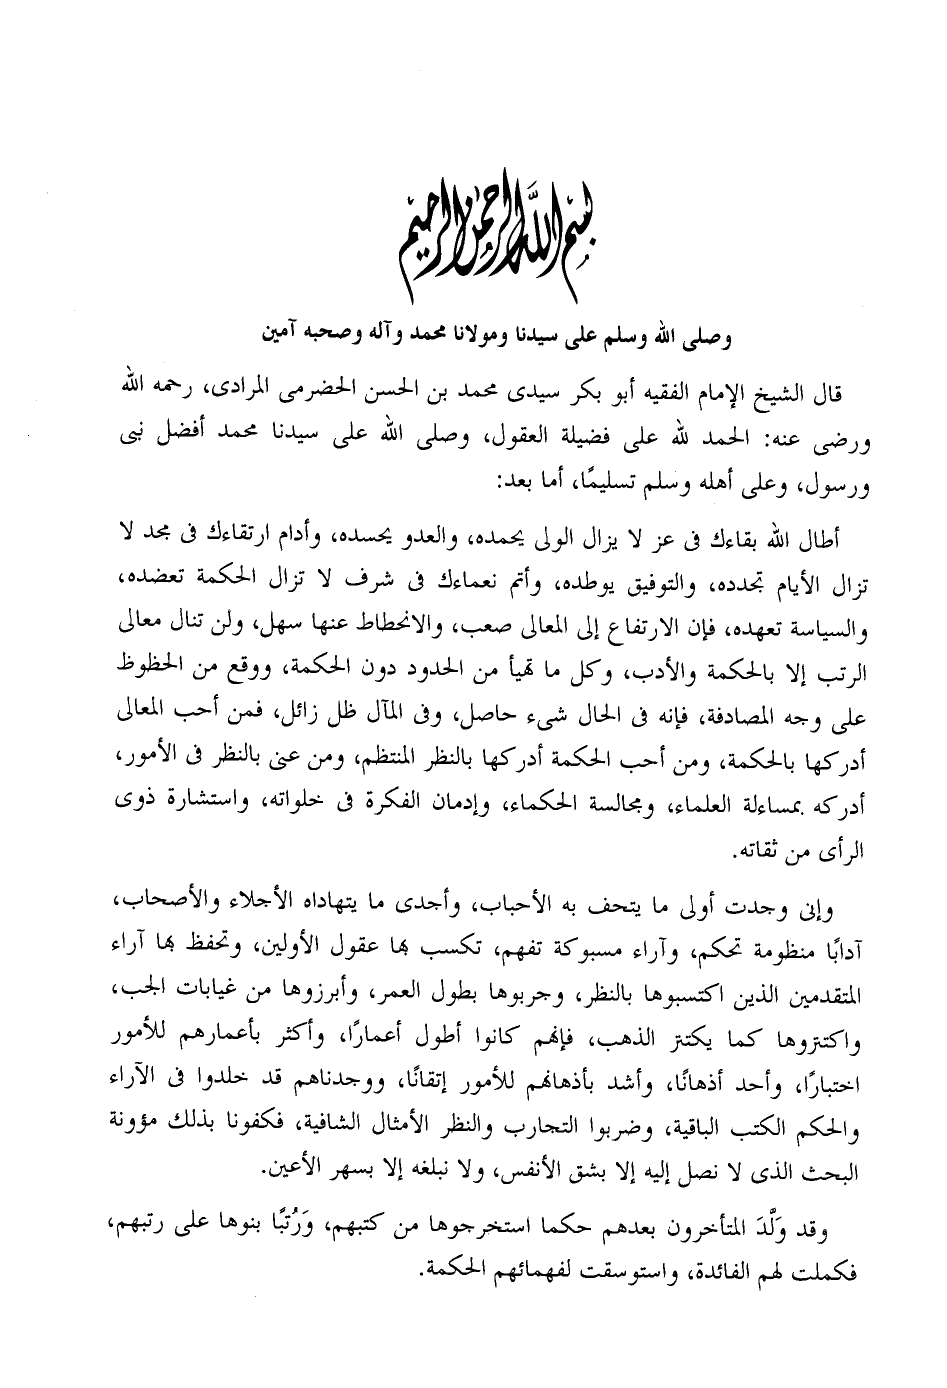 بسم الله الرحمن الرحيم
وصلى الله وسلم على سيدنا ومولانا محمد وآله وصحبه آمين
قال الشيخ الإمام الفقيه أبو بكر سيدى محمد بن الحسن الحضرمى المرادى، رحمه الله
ورضى عنه: الحمد لله على فضيلة العقول، وصلى الله على سيدنا محمد أفضل نبى
ورسول، وعلى أهله وسلم تسليمًا، أما بعد:
أطال الله بقاءك فى عز لا يزال الولى يحمده، والعدو يحسده، وأدام ارتقاءك فى مجد لا
تزال الأيام تجدده، والتوفيق يوطده، وأتم نعماءك فى شرف لا تزال الحكمة تعضده،
والسياسة تعهده، فإن الارتفاع إلى المعالى صعب، والانحطاط عنها سهل، ولن تنال معالى
الرتب إلا بالحكمة والأدب، وكل ما تهيأ من الحدود دون الحكمة، ووقع من الحظوظ
على وجه المصادفة، فإنه فى الحال شىء حاصل، وفى المآل ظل زائل، فمن أحب المعالى
أدركها بالحكمة، ومن أحب الحكمة أدركها بالنظر المنتظم، ومن عنى بالنظر فى الأمور،
أدركه بمساءلة العلماء، ومجالسة الحكماء، وإدمان الفكرة فى خلواته، واستشارة ذوى
الرأى من ثقاته.
وإنى وجدت أولى ما يتحف به الأحباب، وأجدى ما يتهاداه الأجلاء والأصحاب،
آدابًا منظومة تحكم، وآراء مسبوكة تفهم، تكسب بها عقول الأولين، وتحفظ بها آراء
المتقدمين الذين اكتسبوها بالنظر، وجربوها بطول العمر، وأبرزوها من غيابات الجب،
واكتنزوها كما يكتنز الذهب، فإنهم كانوا أطول أعمارًا، وأكثر بأعمارهم للأمور
اختبارًا، وأحد أذهانًا، وأشد بأذهانهم للأمور إتقانًا، ووجدناهم قد خلدوا فى الآراء
والحكم الكتب الباقية، وضربوا التجارب والنظر الأمثال الشافية، فكفونا بذلك مؤونة
البحث الذى لا نصل إليه إلا بشق الأنفس، ولا نبلغه إلا بسهر الأعين.
وقد وَلَّدَ المتأخرون بعدهم حكما استخرجوها من كتبهم، وَرُتبًا بنوها على رتبهم،
فكملت لهم الفائدة، واستوسقت لفهمائهم الحكمة.